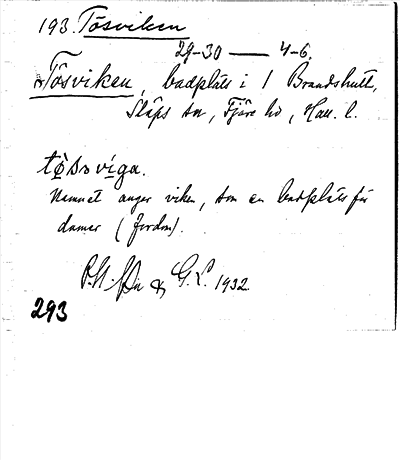 193. Tösviken
29-30 — 4-6.
Tösviken, badplats i 1 Brandshult,
Släps sn, Fjäre hd, Hall. l.
tø̀sɔvíga.
Namnet anger viken, som en badplats för
damer (fordom).
& G.L. 1932.
293